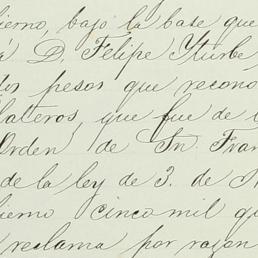 ierno, bajo la base que
á D. Felipe Yturbe
dos pesos que recono
Plateros, que fue de
Orden de Sn. Fran
de la ley de 3. de
bierno cinco mil qu
reclama por razon